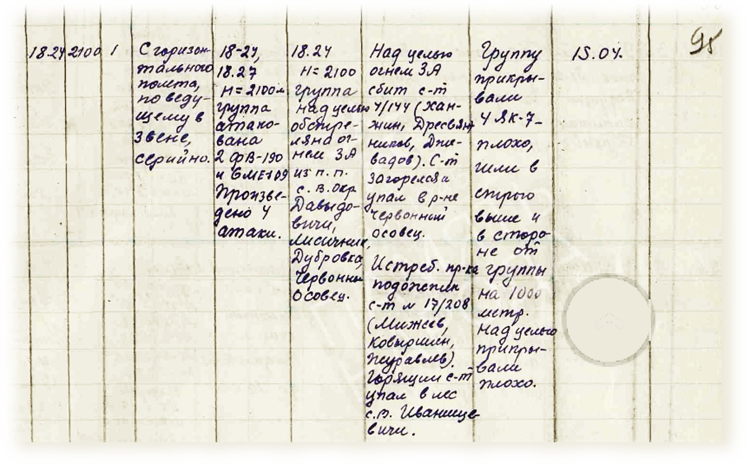 95
18.24 2100 1
С горизон-
тального
полета,
по веду-
щему в
звене,
серийно.
18-24,
18.27
H=2100м
группа
атако-
вана
2 ФВ-190
и 6МЕ109
Произве-
дено 4
атаки.
18.24
H=2100
группа
над целью
обстре-
ляна ог-
нем ЗА
из п.п.
с.в. окр.
Давыдо-
вичи,
Лисичник,
Дубровка,
Червонный
Осовец.
Над целью
огнем ЗА
сбит с-т
4/144 (Хан-
жин, Дресвян-
ников, Дже-
вадов). С-т
загорелся и
упал в р-не
Червонный
Осовец.
Истреб. пр-ка
подожжен
с-т № 17/208
(Михеев,
Ковыршин,
Журавлев).
Горящий с-т
упал в лес
с.п. Иванище-
вичи.
Группу
прикры-
вали
4 ЯК-7-
плохо,
шли в
строго
выше и
в сторо-
не от
группы
на 1000
метр.
Над целью
прикры-
вали
плохо.
15.04.